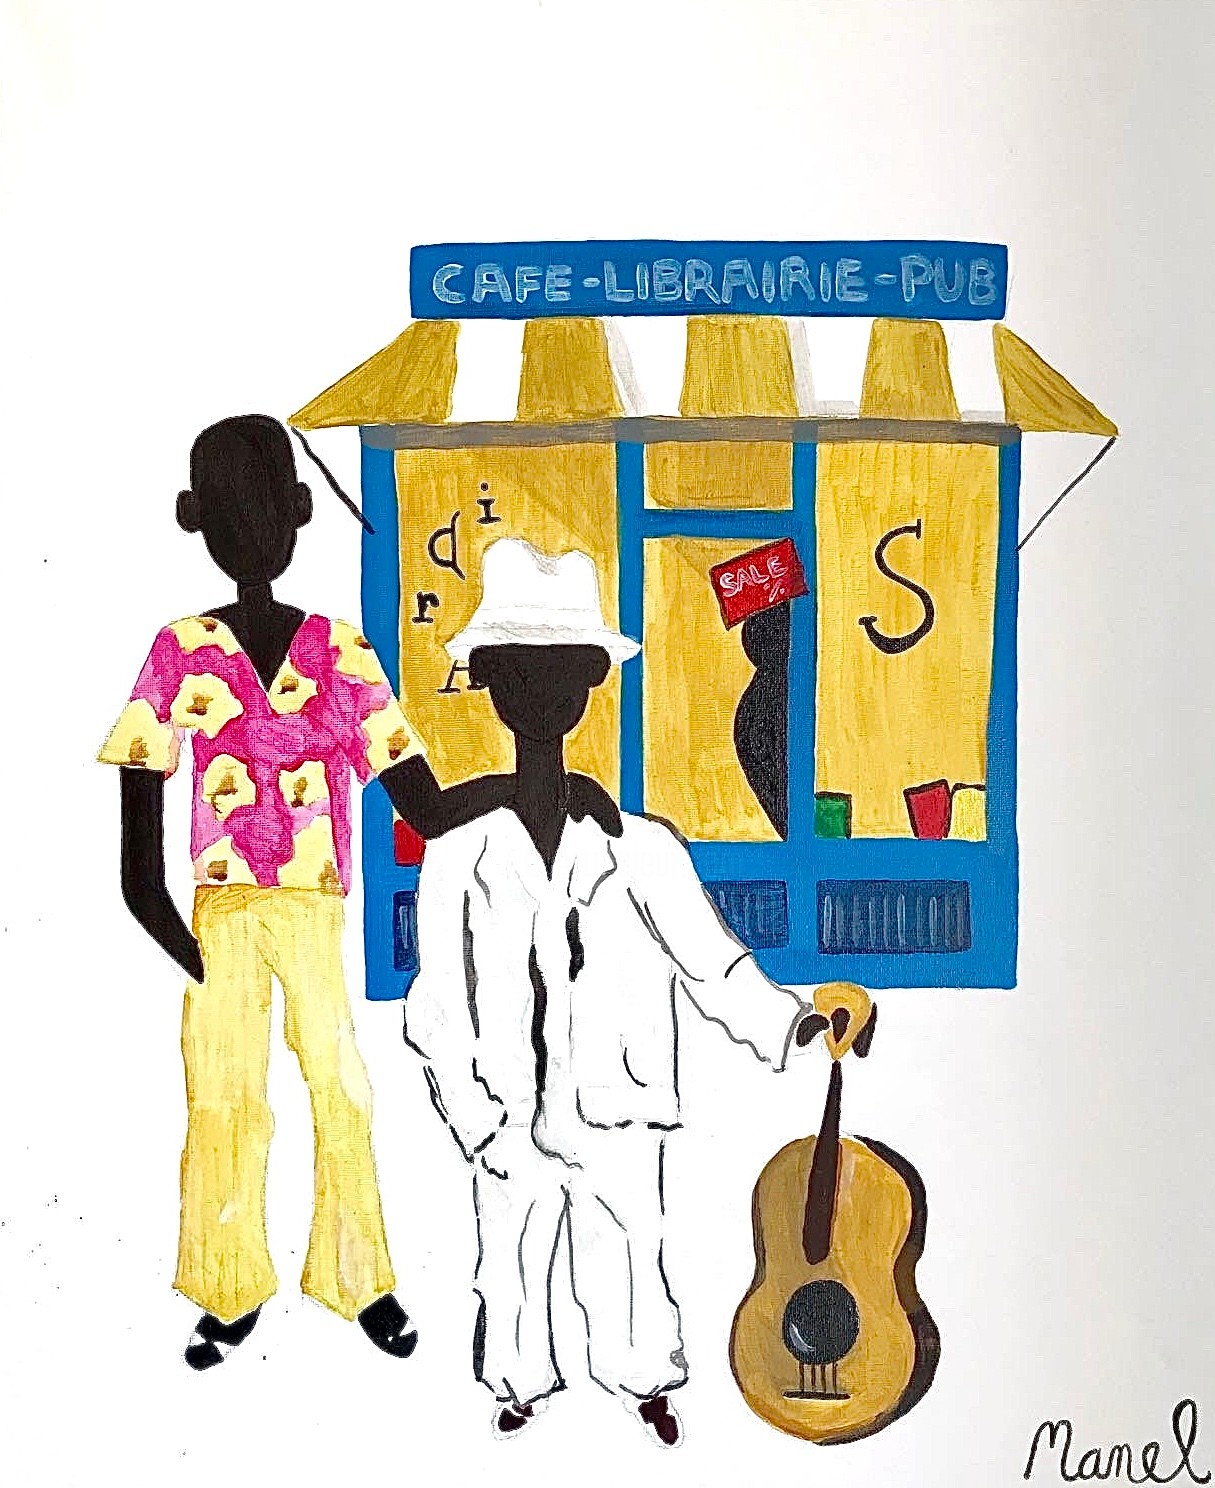 CAFE-LIBRAIRIE-PUB
Ardi
S
SALE
%
Manel